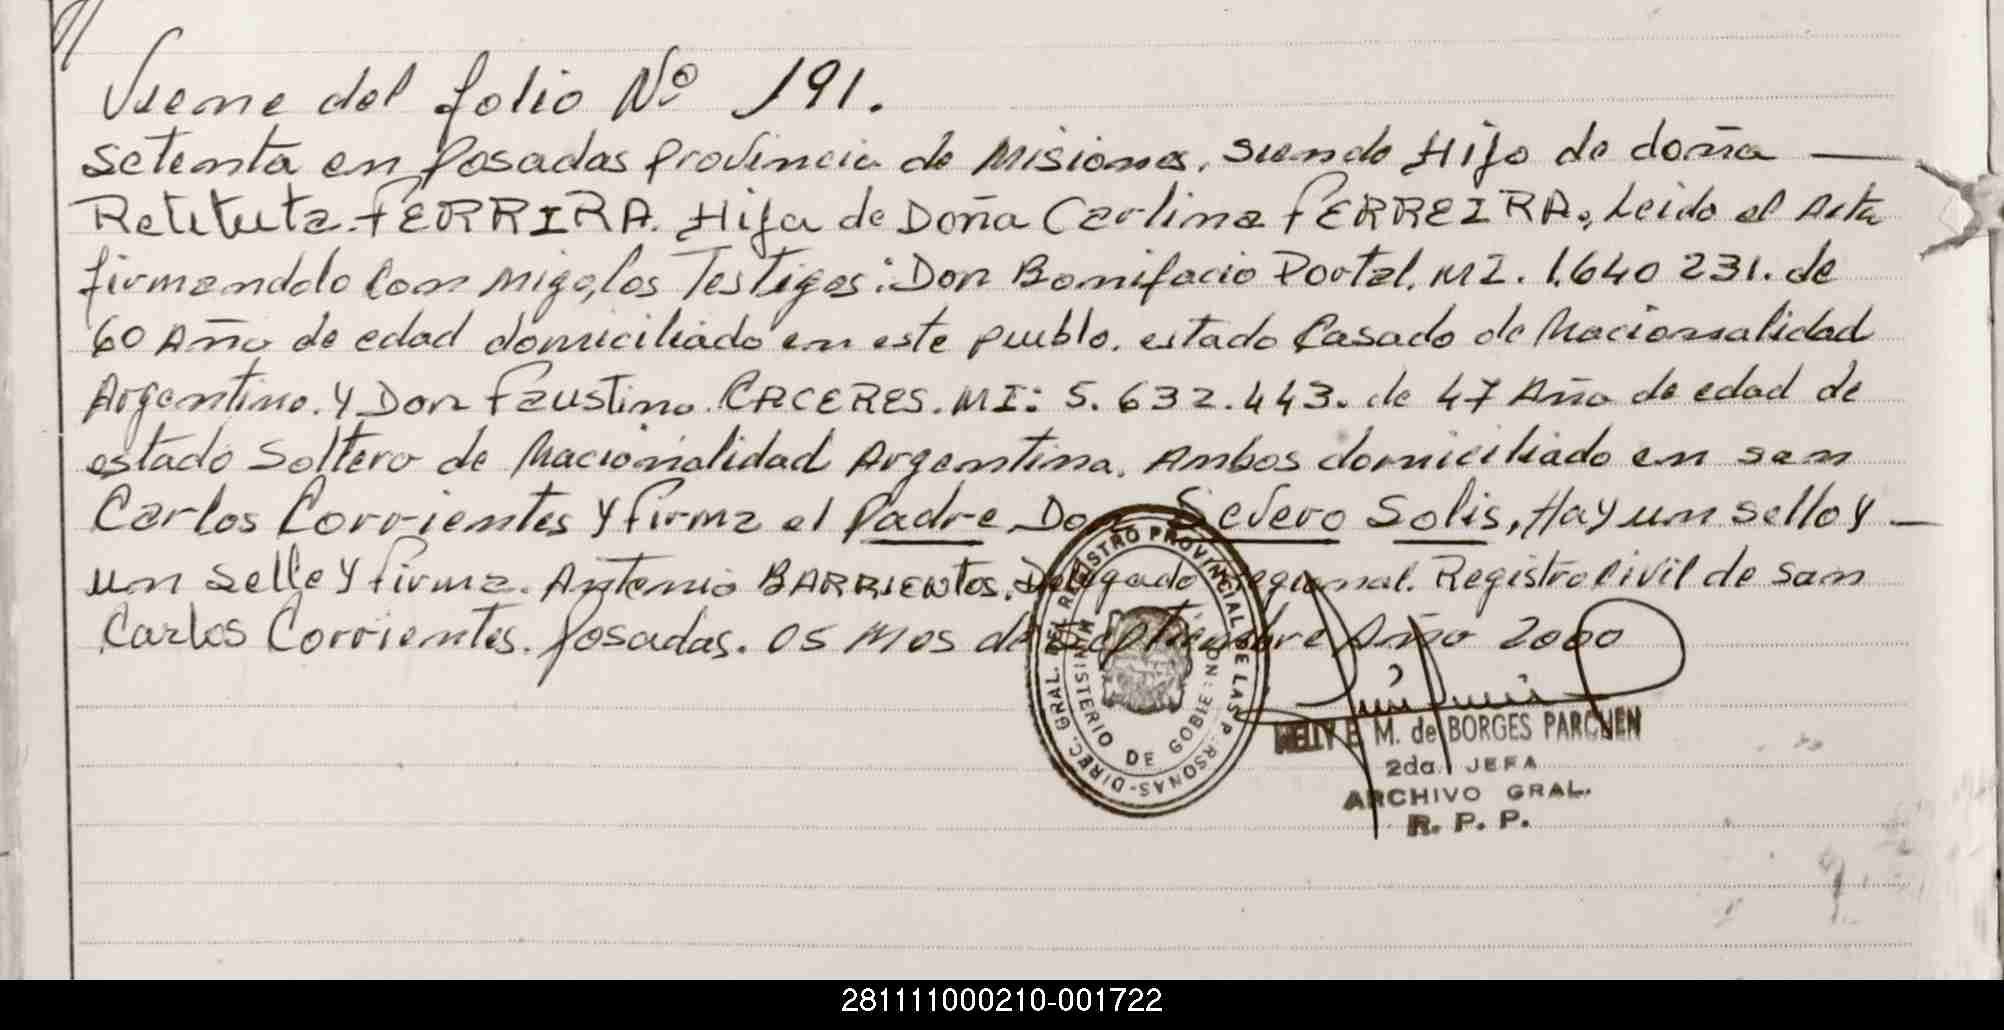 Viene del folio Nº 191.
Setenta en Posadas Provincia de Misiones. siendo Hijo de doña
Retituta FERRIRA. Hija de Doña Carlina FERREIRA, Leido el Acta
firmanddo Con migo, los Testigos: Don Bonifacio Portal. MI. 1.640 231. de
60 Año de edad domiciliado en este pueblo. estado Casado de Nacionalidad
Argentino. Y Don Faustino. CACERES. MI: 5.632.443. de 47 Año de edad de
estado Soltero de Nacionalidad Argentina. Ambos domiciliado en san
Carlos Corrientes y firma el Padre Don Severo Solis, Hay un sello y
un selle y firma. Antonio BARRIENtos. Delegado Regional. Registro Civil de san
Carlos Corrientes. Posadas. 05 Mes de Septiembre Año 2000
DIREC. GRAL. DEL REGISTRO PROVINCIAL DE LAS P RSONAS-
MINISTERIO DE GOBIE NO
NELLY E. M. de BORGES PARCHEN
2da. JEFA
ARCHIVO GRAL.
R. P. P.
281111000210-001722